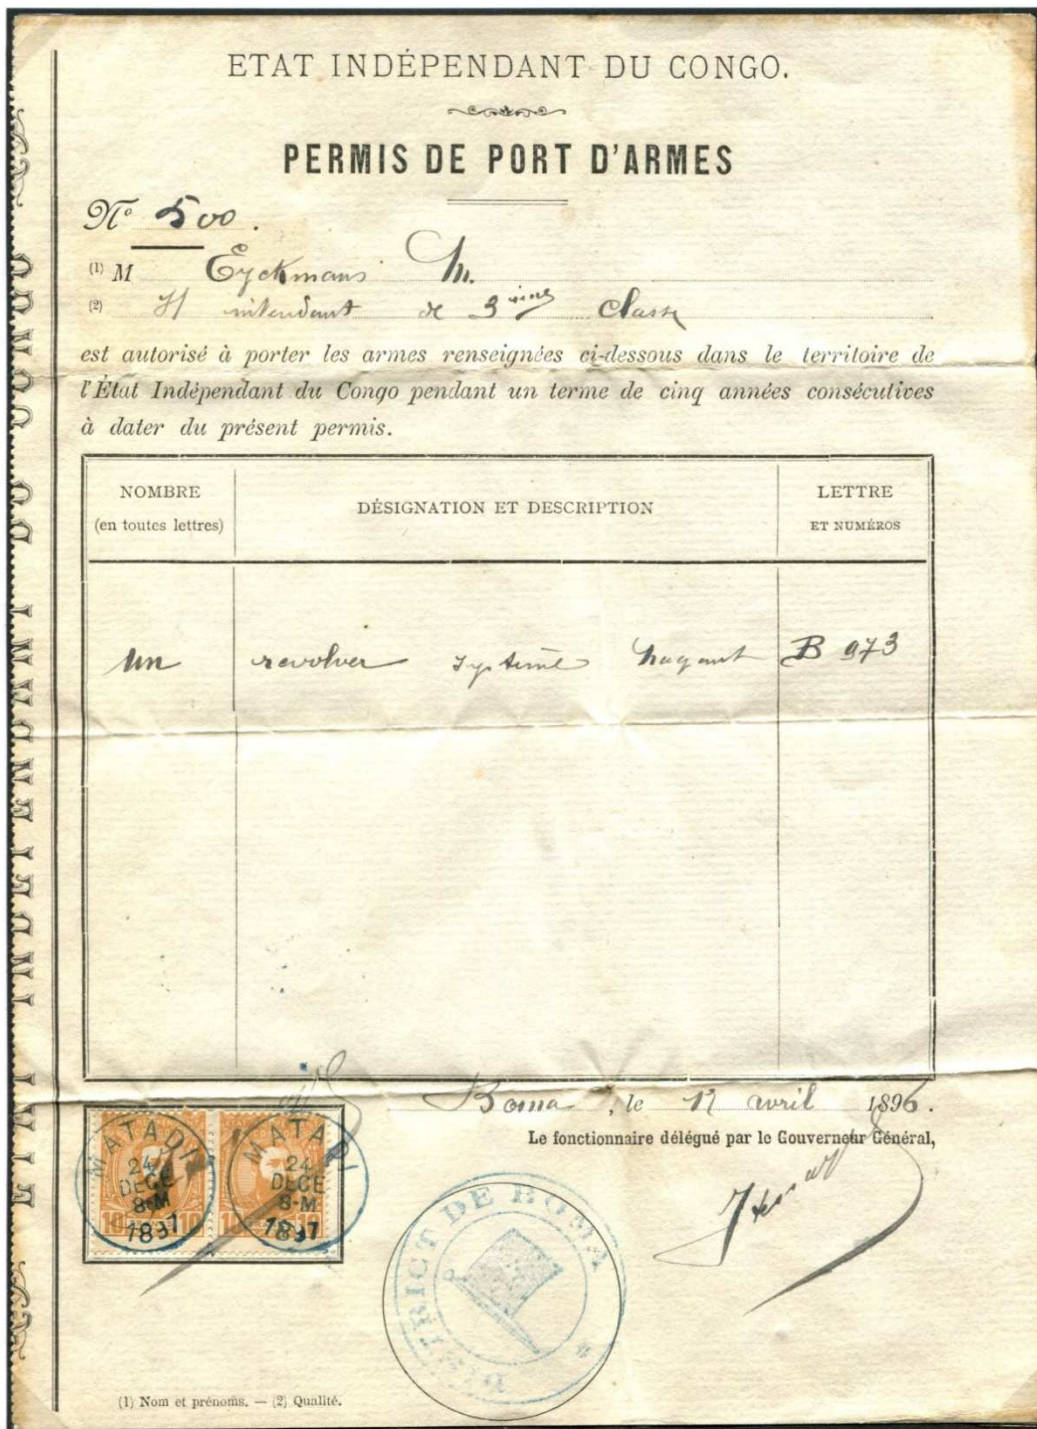 ETAT INDÉPENDANT DU CONGO.
PERMIS DE PORT D'ARMES
No 500.
(1) M Eyckmans M.
(2) intendant de 3ième Classe
est autorisé à porter les armes renseignées ci-dessous dans le territoire de
l'État Indépendant du Congo pendant un terme de cinq années consécutives
à dater du présent permis.
NOMBRE
(en toutes lettres)
DÉSIGNATION ET DESCRIPTION
LETTRE
ET NUMÉROS
Un revolver système Nagant B 973
Boma, le 17 avril 1896.
Le fonctionnaire délégué par le Gouverneur Général,
MATADI
24
DECE
8-M
1897
MATADI
24
DECE
8-M
1897
10 10
10 10
DISTRICT DE BOMA
(1) Nom et prénoms. — (2) Qualité.